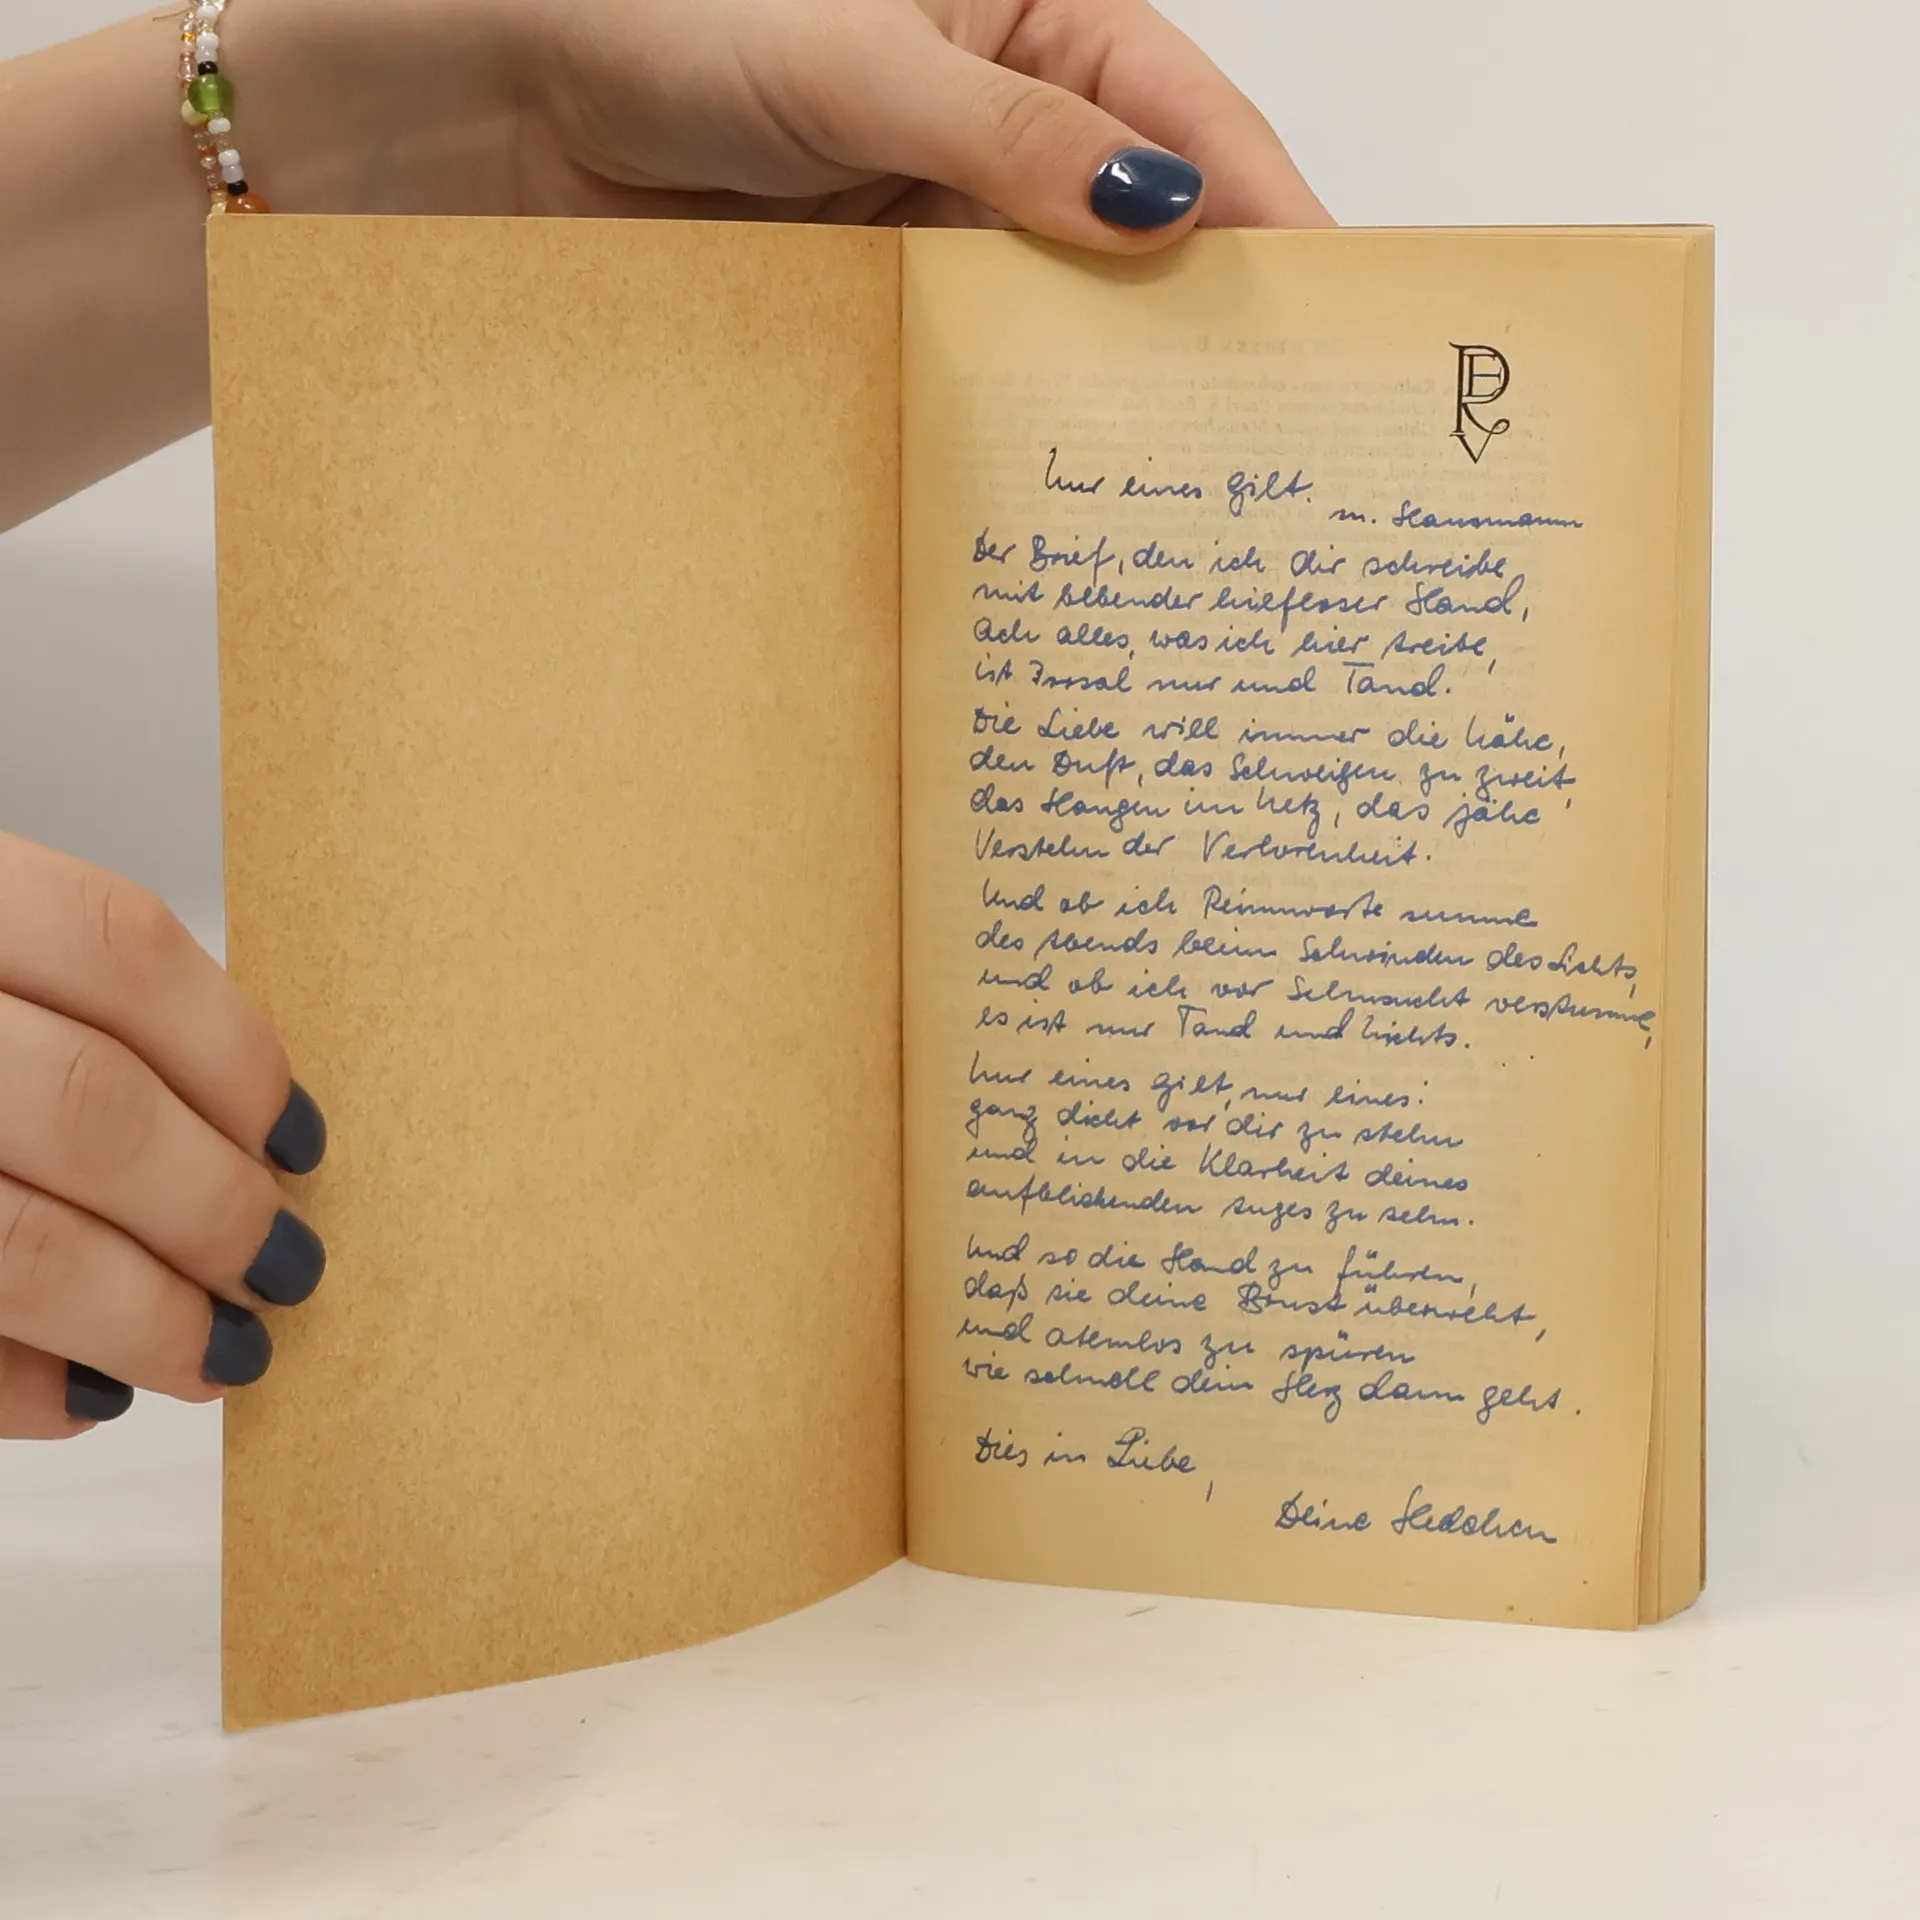 PEV
Nur eines gilt.
m. Hausmann
Der Brief, den ich dir schreibe,
mit bebender hilfloser Hand,
Ach alles, was ich hier treibe,
ist Irrsal nur und Tand.
Die Liebe will immer die Nähe,
den Duft, das Schweigen zu zweit,
das Hangen im Netz, das jähe
Verstehn der Verlorenheit.
Und ob ich Reimworte summe
des Abends beim Schwinden des Lichts,
und ob ich vor Sehnsucht verstumme,
es ist nur Tand und Nichts.
Nur eines gilt, nur eines:
ganz dicht vor dir zu stehn
und in die Klarheit deines
aufblickenden Auges zu sehn.
Und so die Hand zu führen,
daß sie deine Brust überweht,
und atemlos zu spüren
wie schnell dein Herz dann geht.
Dies in Liebe,
Deine Hedchen